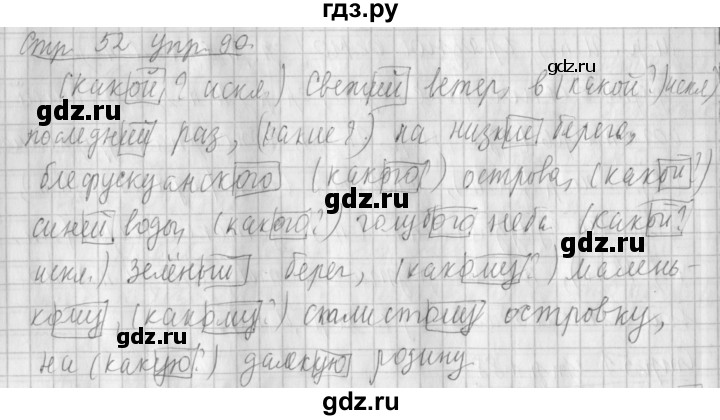 гдз.ру
Стр. 52 упр. 90.
(какой? искл.) свежий ветер, в (какой?) искл.)
gdz.ru gdz.ru
последний раз, (какие?) на низкие берега,
блефускуанского (какого?) острова, (какой?)
gdz.ru
синей воды, (какого?) голубого неба (какой?
gdz.ru gdz.ru
искл.) зелёный берег, (какому?) малень-
кому, (какому?) скалистому островку,
gdz.ru
на (какую?) далекую родину.
gdz.ru gdz.ru